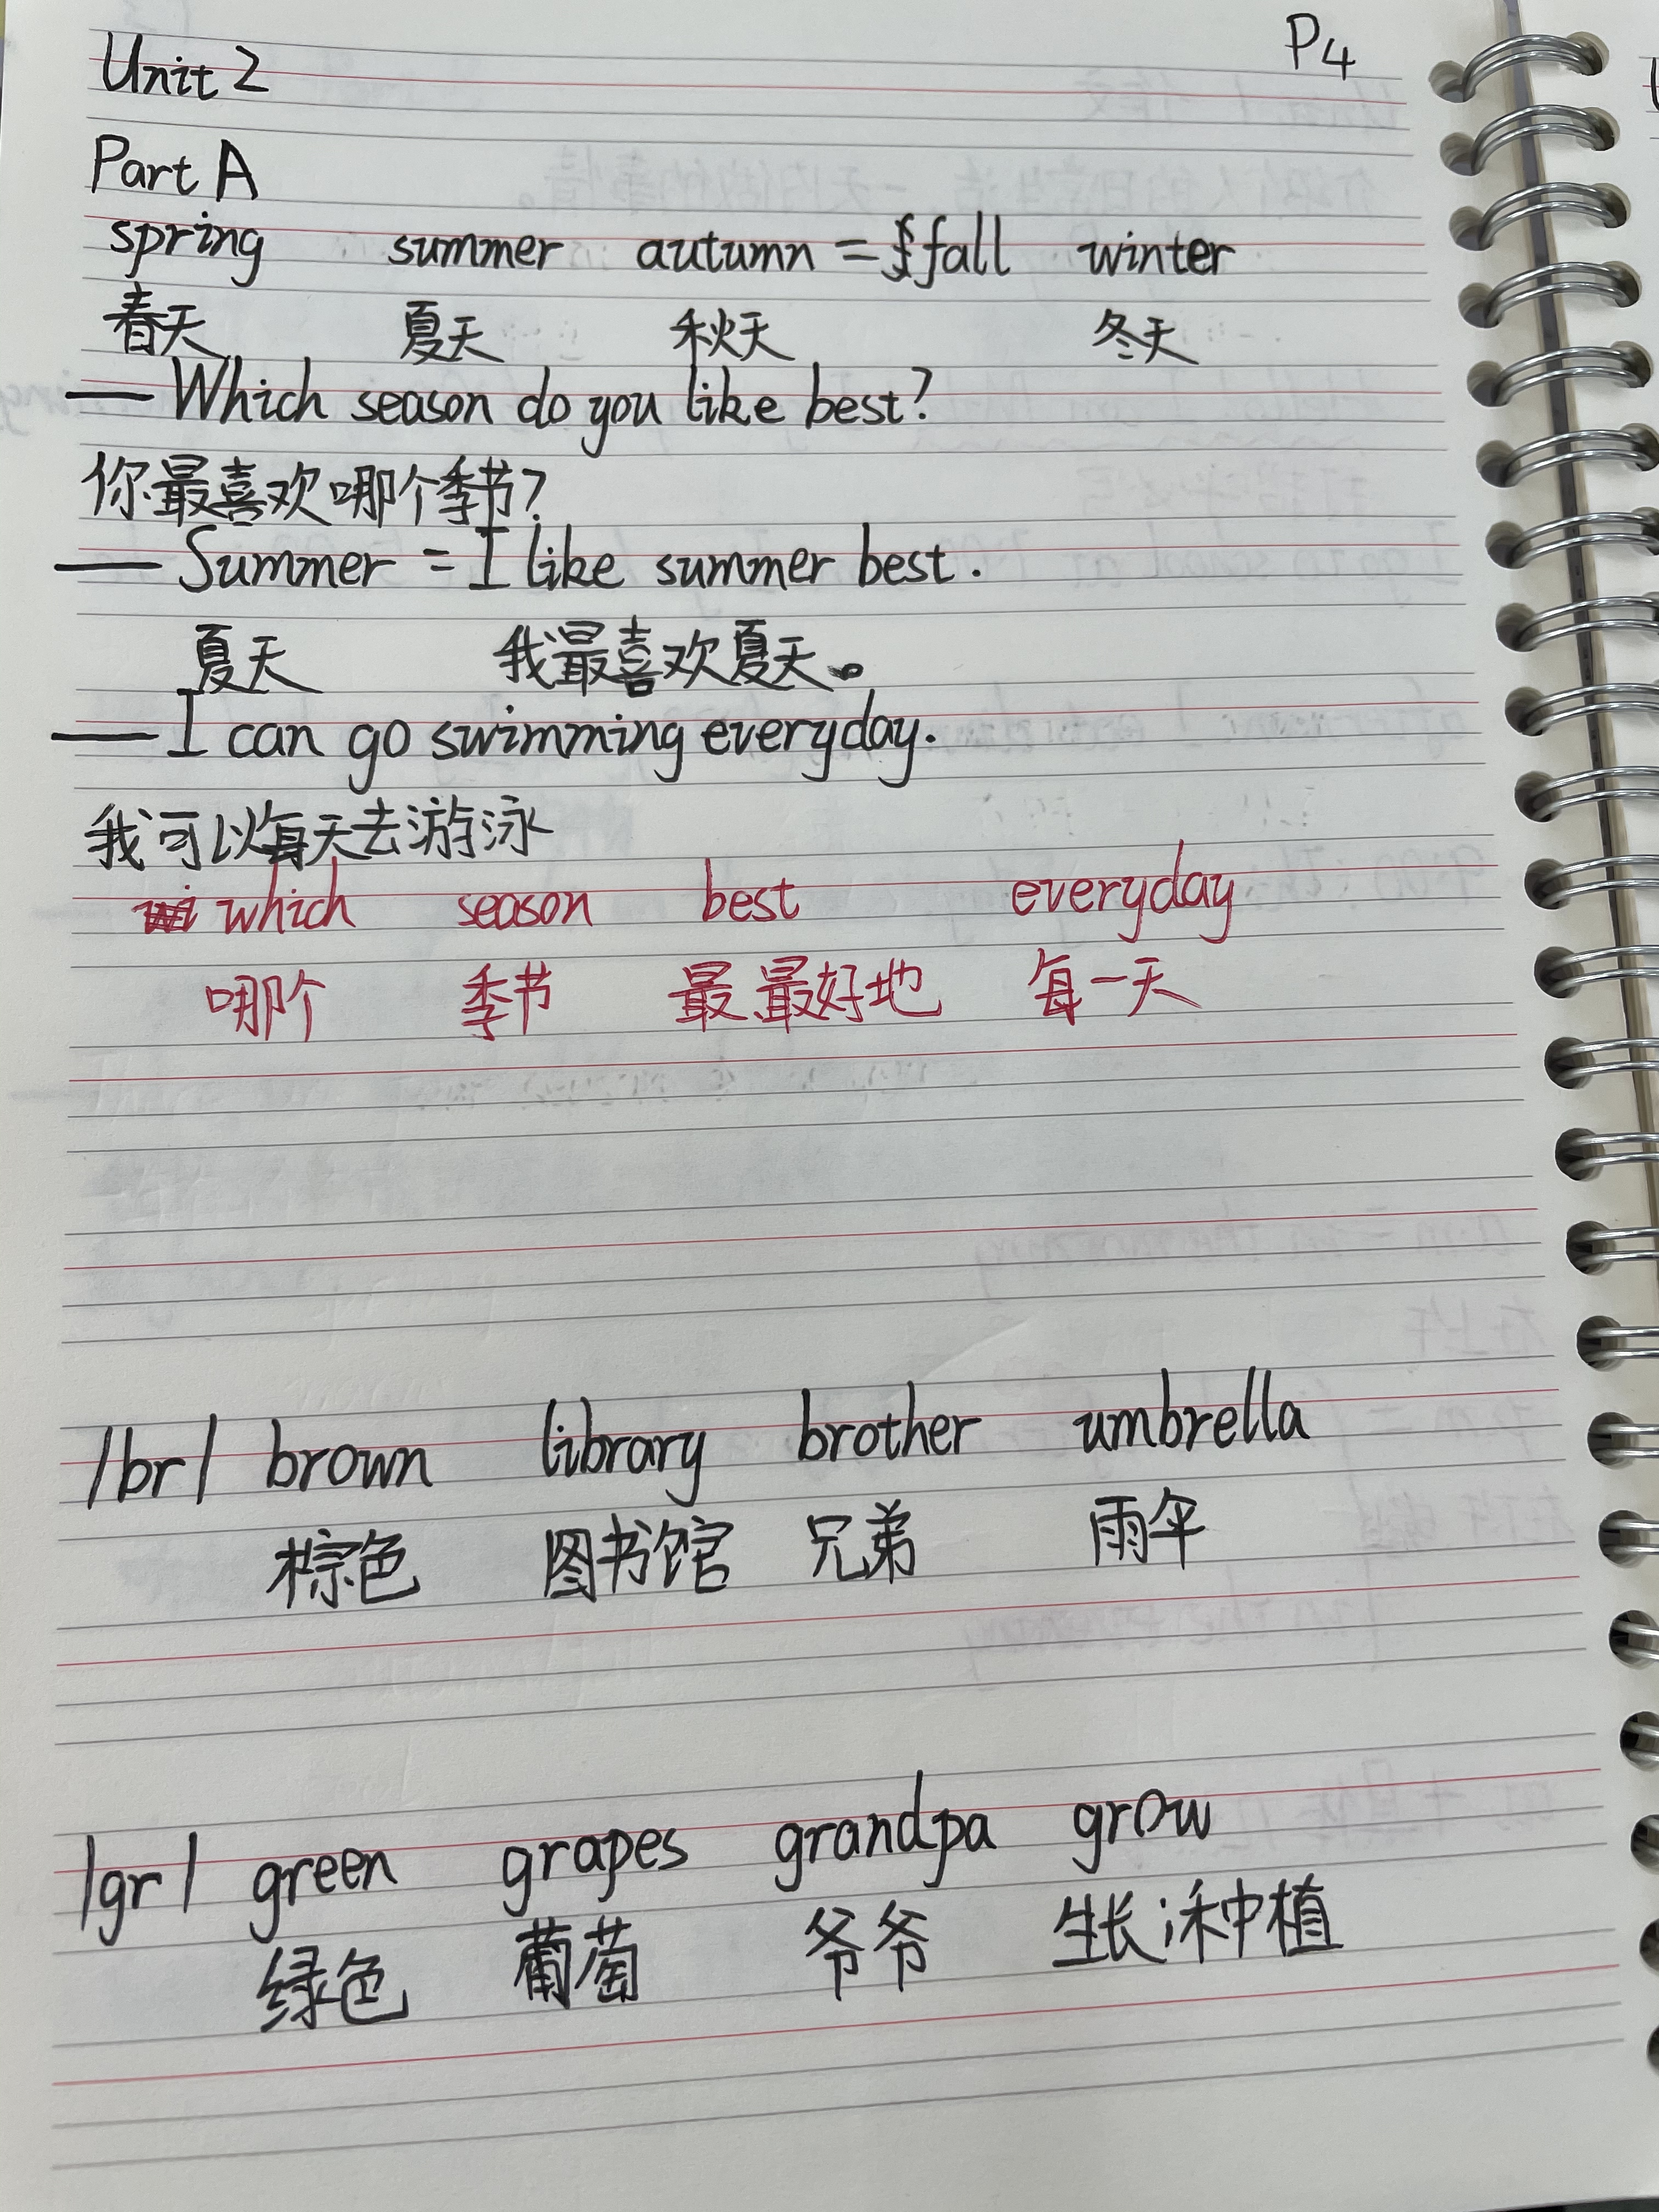 P4
Unit 2
Part A
spring summer autumn = fall winter
春天 夏天 秋天 冬天
— Which season do you like best?
你最喜欢哪个季节?
— Summer = I like summer best.
夏天 我最喜欢夏天。
— I can go swimming everyday.
我可以每天去游泳
which season best everyday
哪个 季节 最,最好地 每一天
/br/ brown library brother umbrella
棕色 图书馆 兄弟 雨伞
/gr/ green grapes grandpa grow
绿色 葡萄 爷爷 生长;种植